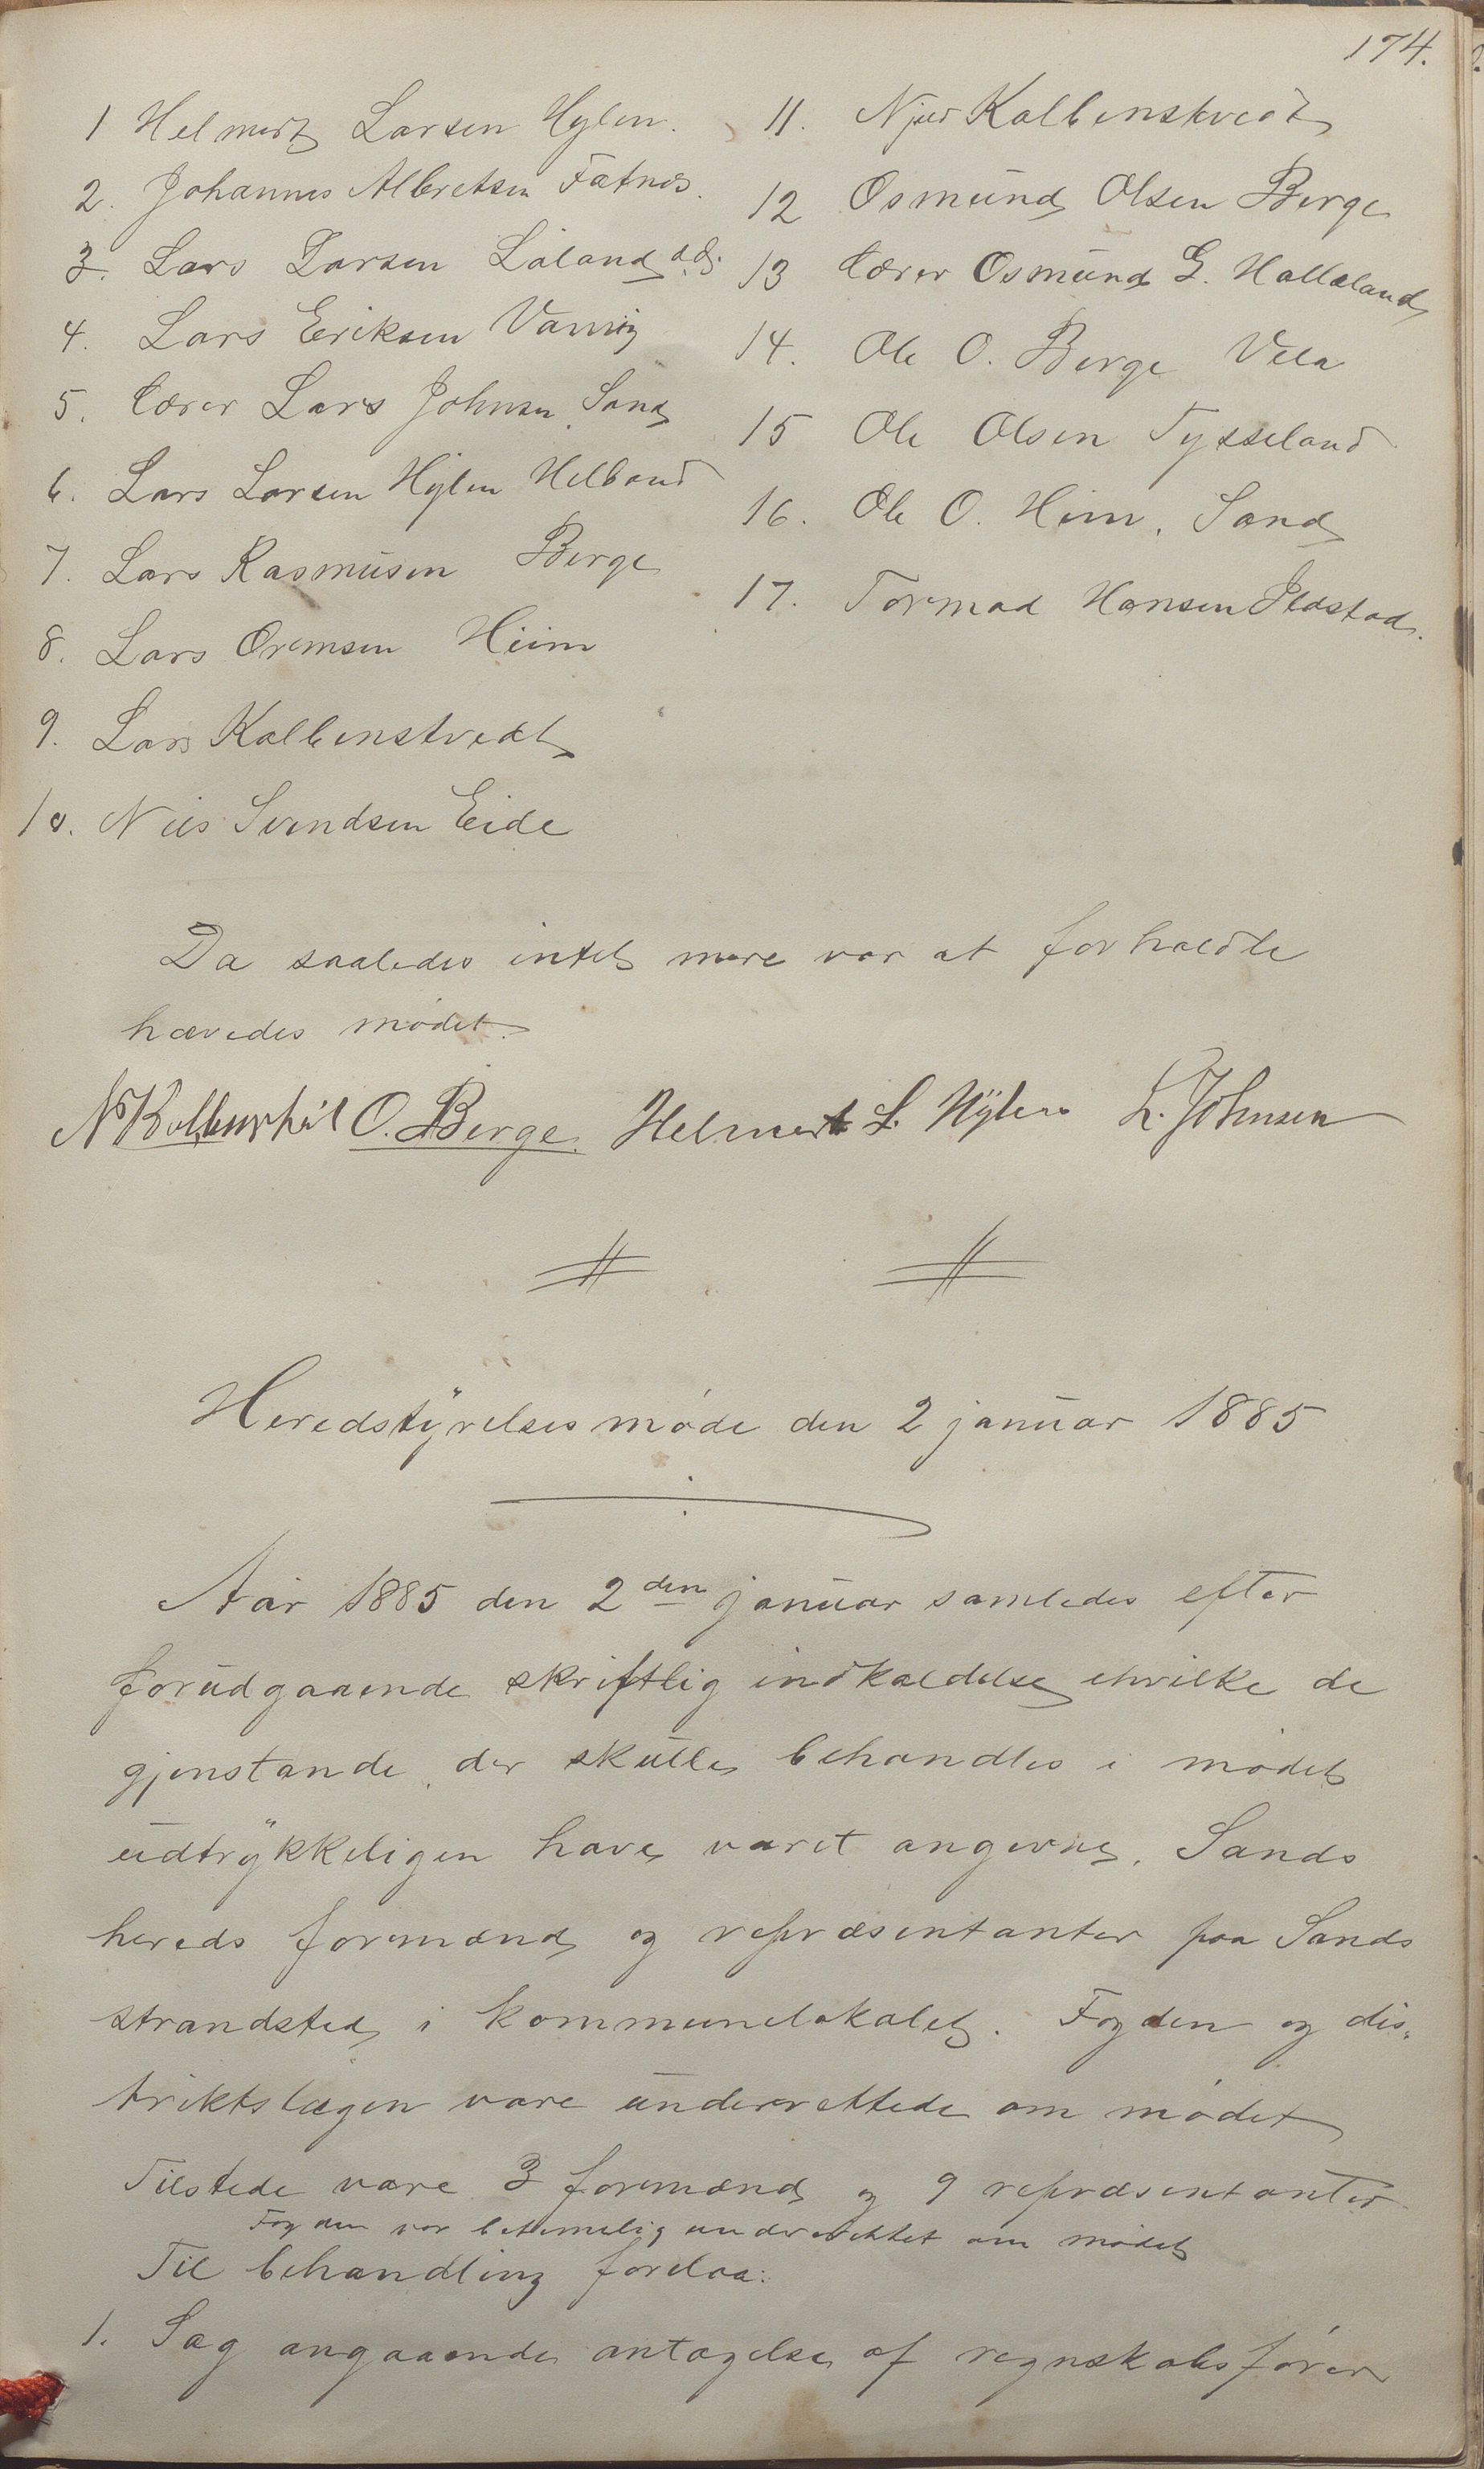 174.
1 Helmert Larsen Hylen.
2. Johannes Albretsen Fatnes.
3. Lars Larsen Laland d.æ.
4. Lars Eriksen Vanvig
5. Lærer Lars Johnsen, Sand
6. Lars Larsen Hylen Helland
7. Lars Rasmusen Berge
8. Lars Ormsen Hiim
9. Lars Kolbenstvedt
10. Niis Svendsen Eide
11. Njæd Kolbenstvedt
12 Osmund Olsen Berge
13 Lærer Osmund G. Hallaland
14. Ole O. Berge Vela
15 Ole Olsen Tysseland
16. Ole O. Hiim, Sand
17. Tormod Hansen Ilstad.
Da saaledes intet mere var at forhandle
hævedes mødet.
N Kolbenstvet O. Berge. Helmert L. Hylen L. Johnsen
Heredstyrelsesmøde den 2 januar 1885
Aar 1885 den 2den januar samledes efter
forudgaaende skriftlig indkaldelse, hvilke de
gjenstande, der skulle behandles i mødet
udtrykkeligen have varet angivne, Sands
hereds formænd og repræsentanter paa Sands
strandsted i kommunelokalet. Fogden og dis-
triktslægen vare underrettede om mødet
Tilstede vare 3 formænd og 9 repræsentanter
Fogden var betimelig underrettet om mødet
Til behandling forelaa:
1. Sag angaaende antagelse af regnskabsfører